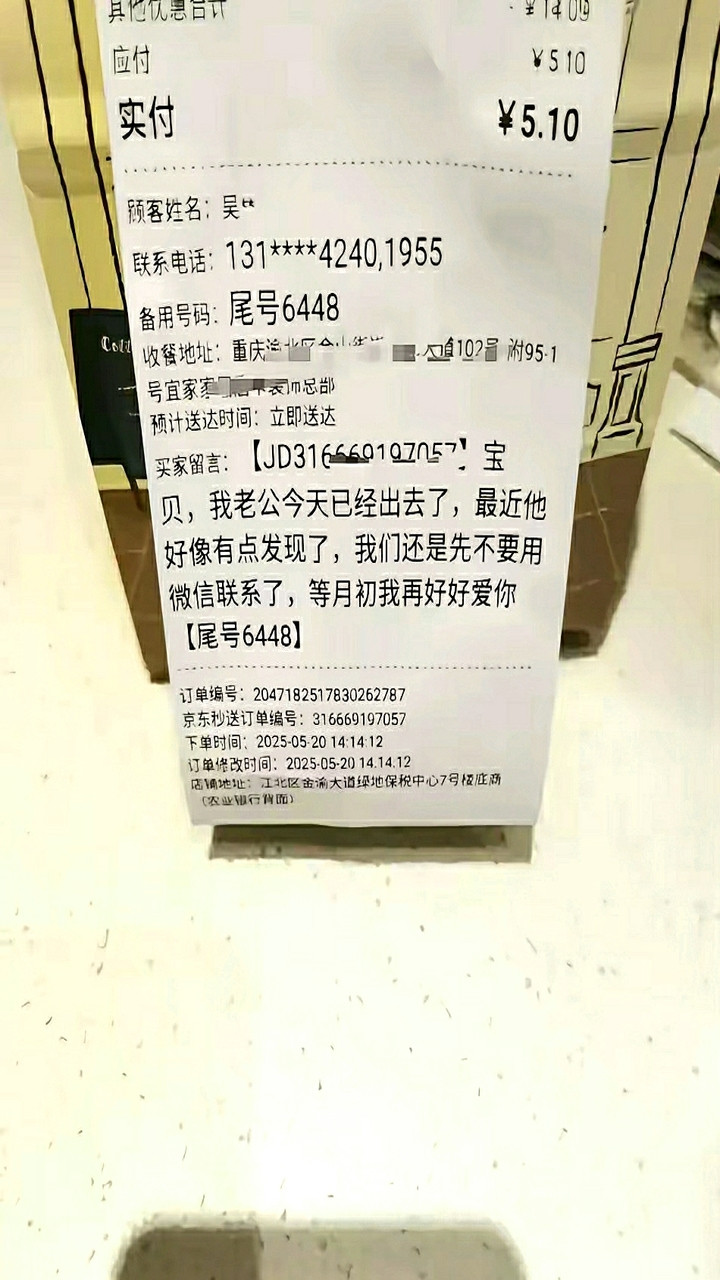 其他优惠合计 ¥14.09
应付 ¥5.10
实付 ¥5.10
顾客姓名：吴**
联系电话：131****4240,1955
备用号码：尾号6448
收餐地址：重庆渝北区金山街 大道102号 附95-1
号宜家 装饰总部
预计送达时间：立即送达
买家留言：【JD316669197057】宝
贝，我老公今天已经出去了，最近他
好像有点发现了，我们还是先不要用
微信联系了，等月初我再好好爱你
【尾号6448】
订单编号：2047182517830262787
京东秒送订单编号：316669197057
下单时间：2025-05-20 14:14:12
订单修改时间：2025-05-20 14:14:12
店铺地址：江北区金渝大道绿地保税中心7号楼底商
（农业银行背面）